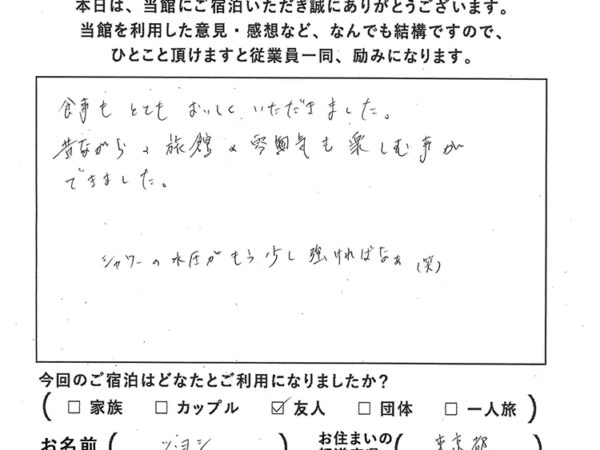 本日は、当館にご宿泊いただき誠にありがとうございます。
当館を利用した意見・感想など、なんでも結構ですので、
ひとこと頂けますと従業員一同、励みになります。
食事もとてもおいしくいただきました。
昔ながらの旅館の雰囲気も楽しむ事が
できました。
シャワーの水圧がもう少し強ければなぁ(笑)
今回のご宿泊はどなたとご利用になりましたか?
(□ 家族 □ カップル ☑ 友人 □ 団体 □ 一人旅)
お名前 ( ) お住まいの ( 東京都